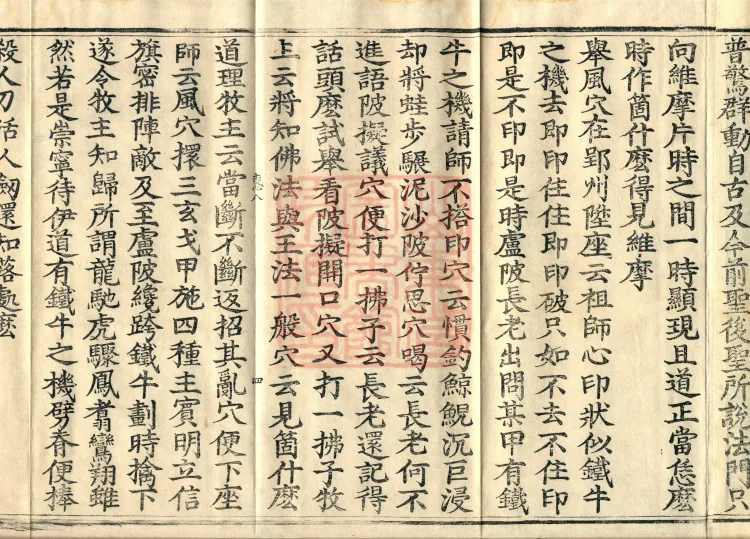 普驚群動自古及今前聖後聖所說法門只
向維摩片時之間一時顯現且道正當恁麽
時作箇什麽得見維摩
舉風穴在郢州陞座云祖師心印狀似鐵牛
之機去即印住住即印破只如不去不住印
即是不印即是時盧陂長老出問某甲有鐵
牛之機請師不搭印穴云慣釣鯨鯢沉巨浸
却將蛙步驟泥沙陂佇思穴喝云長老何不
進語陂擬議穴便打一拂子云長老還記得
話頭麽試舉看陂擬開口穴又打一拂子牧
主云將知佛法與王法一般穴云見箇什麽
道理牧主云當斷不斷返招其亂穴便下座
師云風穴擐三玄戈甲施四種主賓明立信
旗密排陣敵及至盧陂纔跨鐵牛劃時擒下
遂令牧主知歸所謂龍馳虎驟鳳翥鸞翔雖
然若是崇寧待伊道有鐵牛之機劈脊便棒
殺人刀活人劒還知落處麽
四